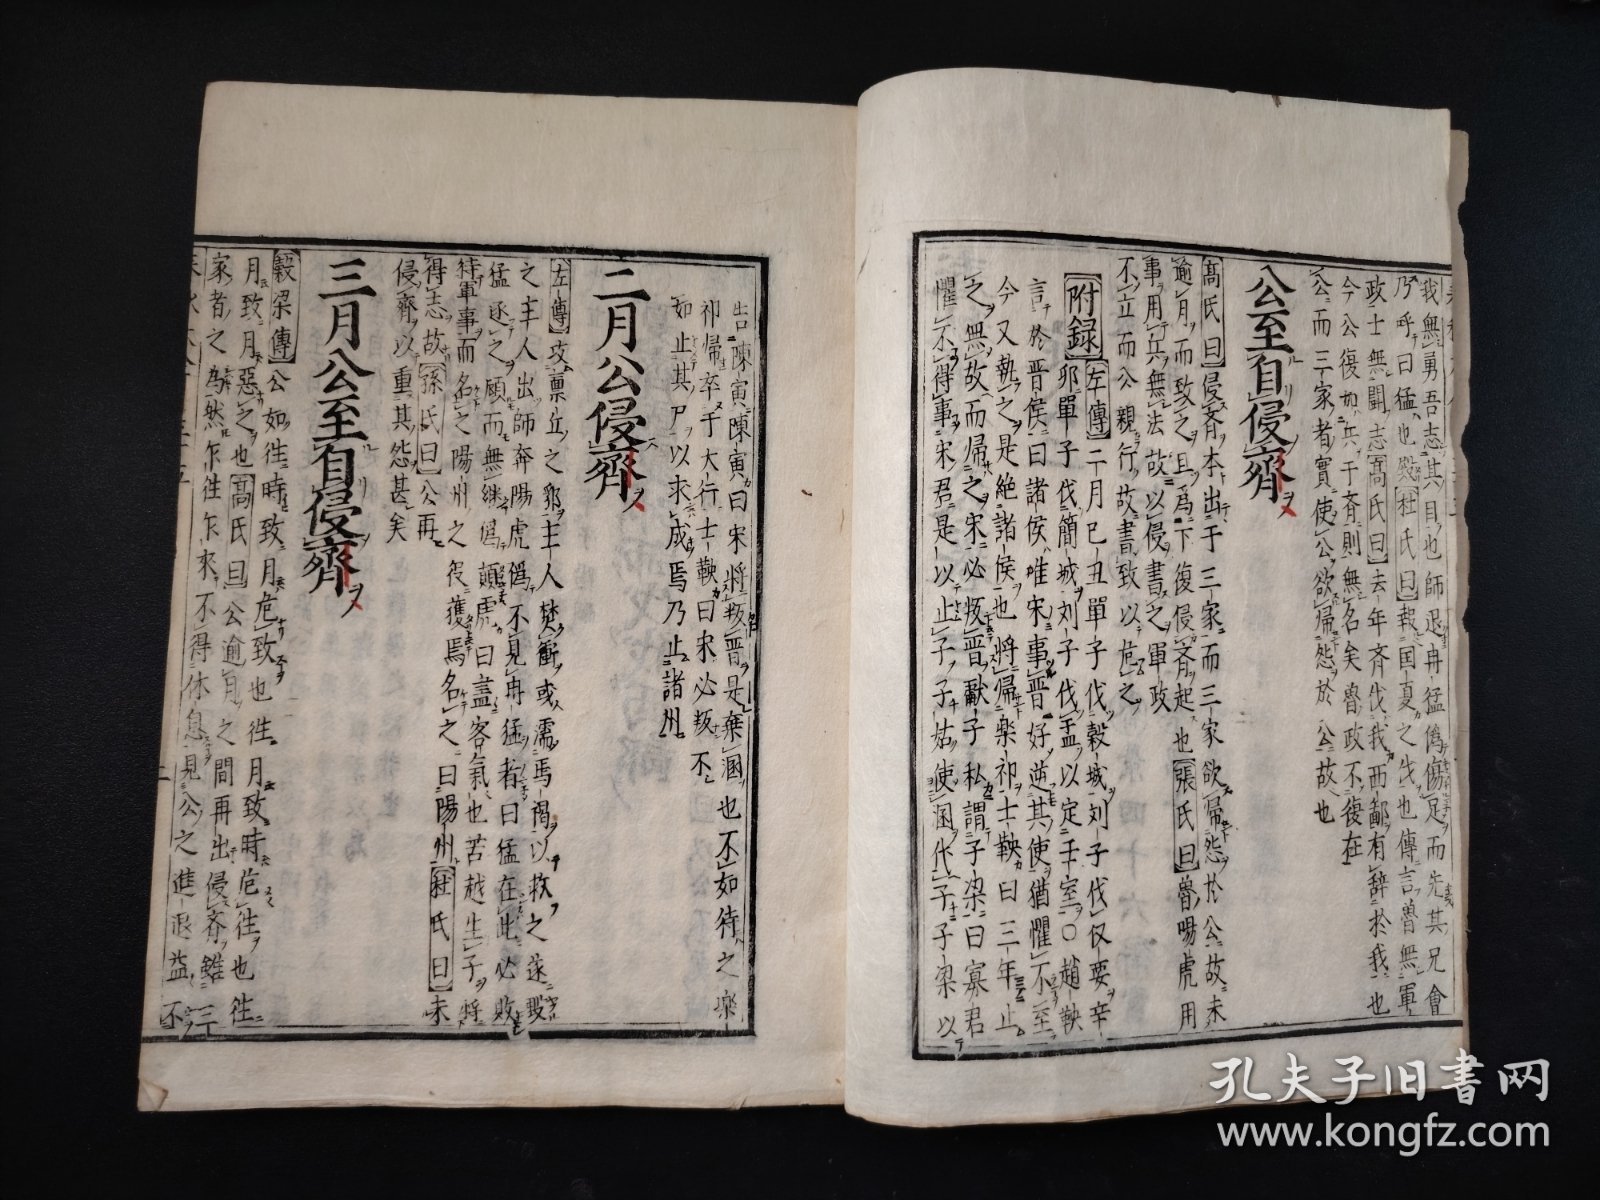 我無勇吾志其目也師退冉猛偽傷足而先其兄會
乃呼曰猛也殿杜氏曰報国夏之伐也傳言魯無軍
政士無鬪志高氏曰去年斉伐我西鄙有辭於我也
今公復加兵于斉則無名矣魯政不復在
公而三家者實使公欲帰怨於公故也
公至自侵齊
高氏曰侵斉本出于三家而三家欲帰怨於公故未
逾月而致之且為下復侵斉起也張氏曰魯陽虎用
事用兵無法故以侵書之軍政
不立而公親行故書致以危之
附録左傳二月已丑單子伐穀城刘子伐仪栗辛
卯單子伐簡城刘子伐盂以定王室○趙鞅
言於晋侯曰諸侯唯宋事晋好逆其使猶懼不至
今又執之是絶諸侯也將帰楽祁士鞅曰三年止
之無故而帰之宋必叛晋獻子私謂子梁曰寡君
懼不得事宋君是以止子子姑使溷代子子梁以
告陳寅陳寅曰宋將叛晋是棄溷也不如待之楽
祁帰卒于大行士鞅曰宋必叛不
如止其尸以求成焉乃止諸州
二月公侵齊
左傳攻廪丘之郛主人焚衝或濡馬褐以救之遂毀
之主人出師奔陽虎偽不見冉猛者曰猛在此必敗
猛逐之顧而無継偽顛虎曰盡客氣也苫越生子將
待事而名之陽州之役獲焉名之曰陽州杜氏曰未
得志故孫氏曰公再
侵齊以重其怨甚矣
三月公至自侵齊
穀梁傳公如徃時致月危致也徃月致時危徃也徃
月致月惡之也高氏曰公逾月之間再出侵斉雖三
家者之為然乍徃乍來不得休息見公之進退益不
孔夫子旧書网
www.kongfz.com